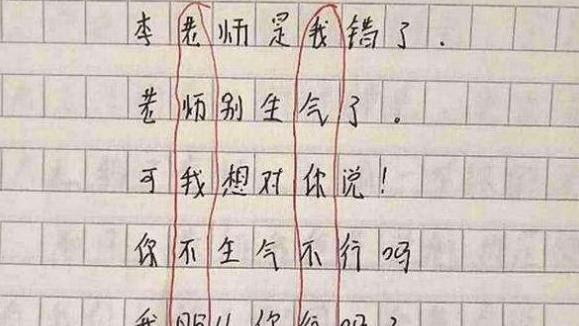 李老师是我错了.
老师别生气了。
可我想对你说!
你不生气不行吗
我服从你行吗?